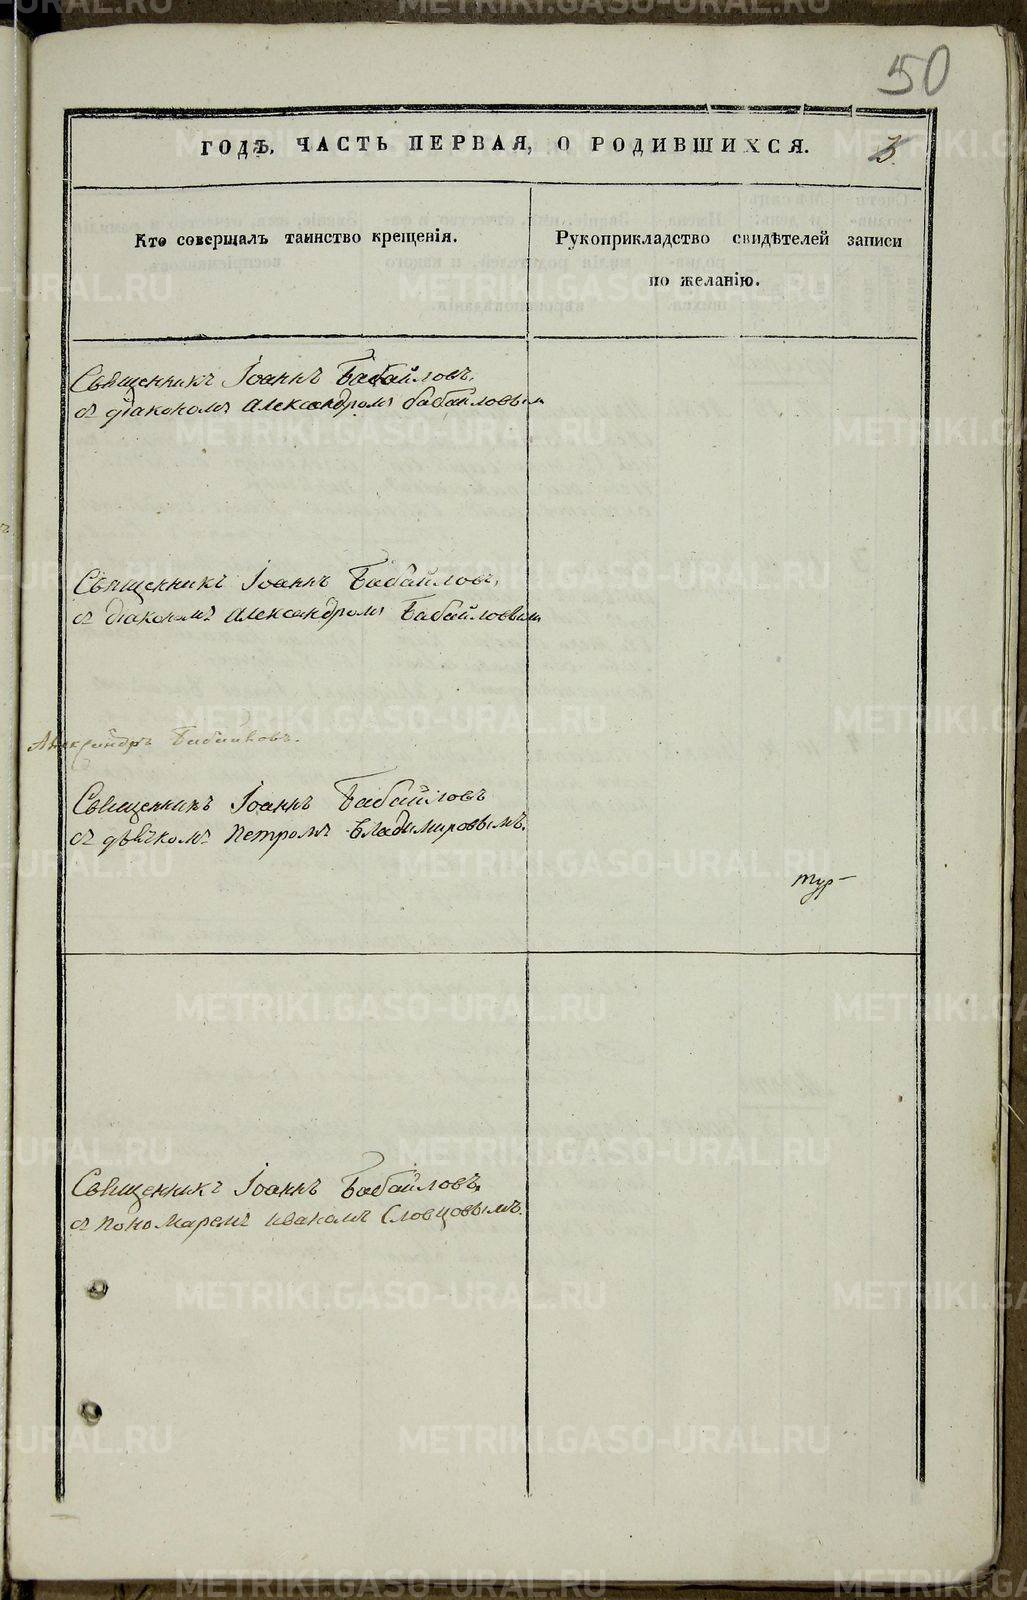 50
ГОДѢ, ЧАСТЬ ПЕРВАЯ, О РОДИВШИХСЯ.
3
Кто совершалъ таинство крещенія.
Рукоприкладство свидѣтелей записи
по желанію.
Священникъ Іоаннъ Бабайловъ,
съ діакономъ Александромъ Бабайловым
Священникъ Іоаннъ Бабайловъ,
съ діакономъ Александромъ Бабайловым
Александръ
Священникъ Іоаннъ Бабайловъ
съ дьячкомъ Петромъ Владимировымъ.
тур-
Священникъ Іоаннъ Бабайловъ
съ пономаремъ Иваномъ Словцовымъ.
METRIKI.GASO-URAL.RU